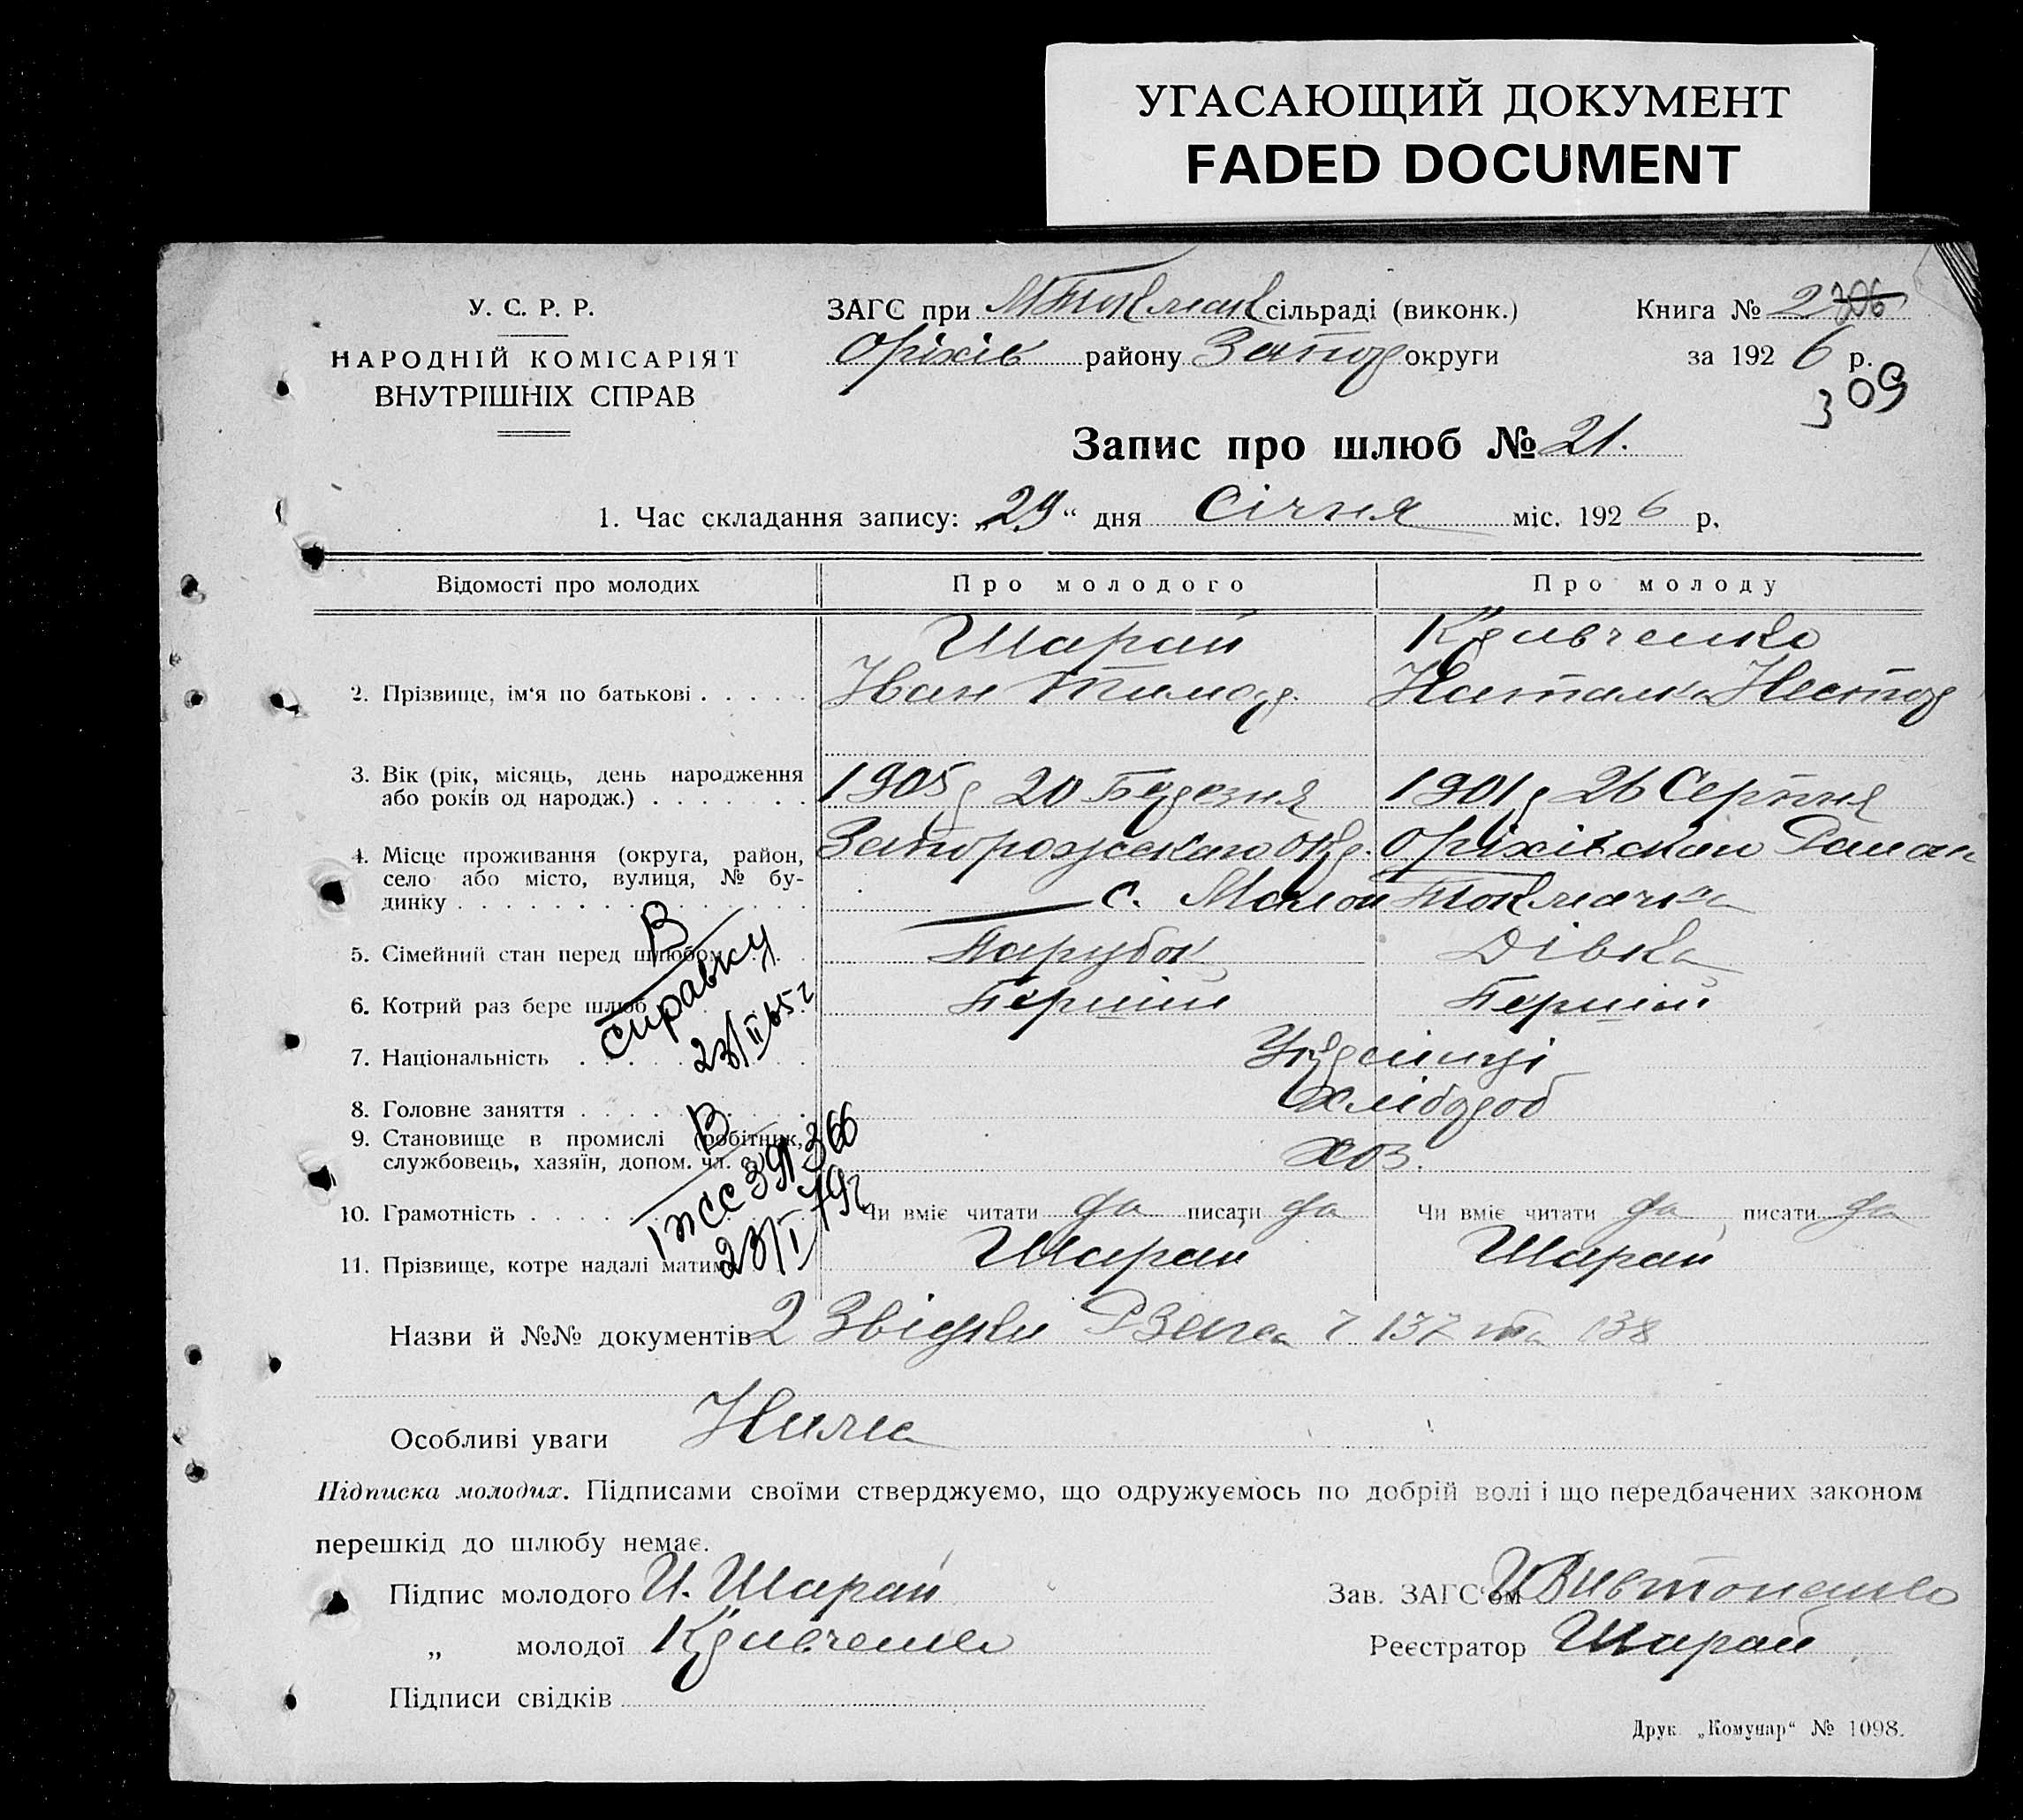 УГАСАЮЩИЙ ДОКУМЕНТ
FADED DOCUMENT
У. С. Р. Р.
НАРОДНІЙ КОМІСАРІЯТ
ВНУТРІШНІХ СПРАВ
ЗАГС при МТокмац сільраді (виконк.)
Оріхів району Запор округи
Книга № 2 306
за 1926 р.
309
Запис про шлюб № 21.
1. Час складання запису: „29“ дня Січня міс. 1926 р.
Відомості про молодих Про молодого Про молоду
Шарай Кривченко
2. Прізвище, ім'я по батькові . . . . . Іван Тимоф. Наталка Нестор
3. Вік (рік, місяць, день народження 
або років од народж.) . . . . . . . 1905р 20 Березня 1901р 26 Серпня
4. Місце проживання (округа, район, Запорожского Окр. Оріхівскаго
село або місто, вулиця, № бу-
динку . . . . . . . . . . . . . . . с. Малой Токмачка
5. Сімейний стан перед шлюбом . . . Парубок Дівка
6. Котрий раз бере шлюб Перший Перший
7. Національність . . . . Українці
8. Головне заняття . . . . . . . Хлібороб
9. Становище в промислі (робітник,
службовець, хазяїн, допом. чл. Хоз.
10. Грамотність . . . . . Чи вміє читати да писати да Чи вміє читати да писати да
11. Прізвище, котре надалі матим Шарай Шарай
В
справку
23/II 65 г
В
391366
23/I 79г
Назви й №№ документів 2 Звідки 137 та 138
Особливі уваги Нима
Підписка молодих. Підписами своїми стверджуємо, що одружуємось по добрій волі і що передбачених законом
перешкід до шлюбу немає.
Підпис молодого И. Шарай
„ молодої Кривченко
Підписи свідків
Зав. ЗАГС'ом
Реєстратор Шарай
Друк. „Комунар“ № 1098.